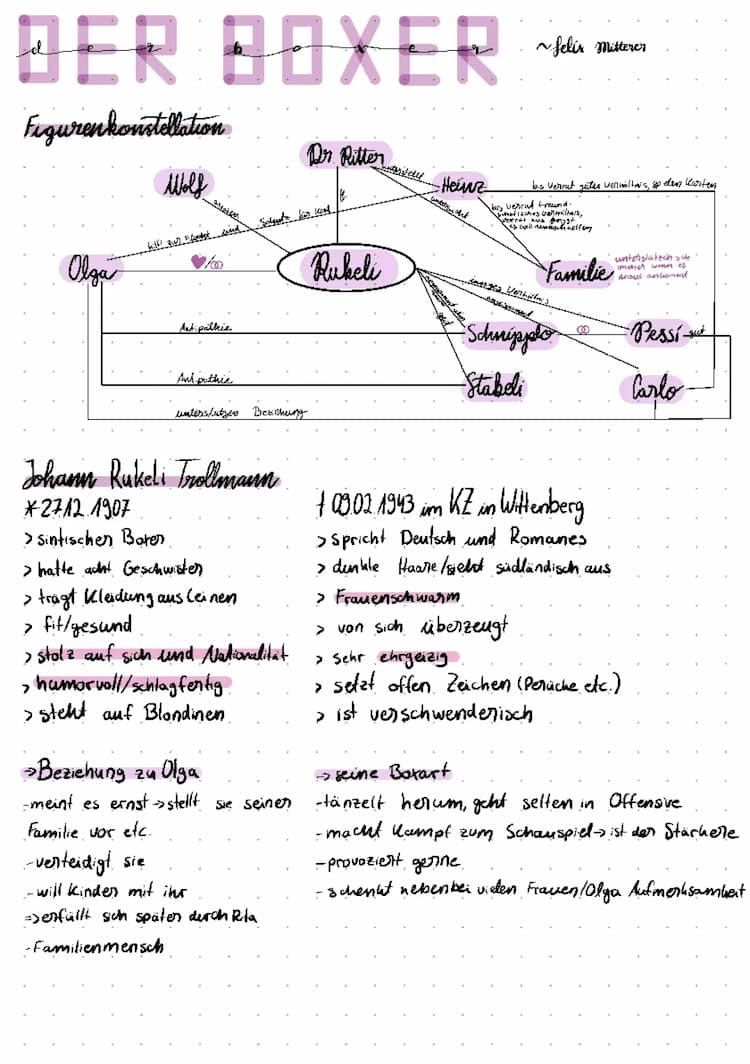 DER BOXER
der boxer
~ Felix Mitterer
Figurenkonstellation
Dr. Ritter
Wolf
Heinz
bis Verrat gutes Verhältnis, so den Karten
Schutz für Kind
hilf zur Flucht und
Olga
Rukeli
Familie
unterstützen sich
immer wenn es
drauf ankommt
inniges Verhältnis
Antipathie
Schnipplo
Pessi
gut
Antipathie
Stabeli
Carlo
unterstützen Beziehung
Johann Rukeli Trollmann
*27.12.1907
† 09.02.1943 im KZ in Wittenberg
> sintischen Boxer
> spricht Deutsch und Romanes
> hatte acht Geschwister
> dunkle Haare/sieht südländisch aus
> trägt Kleidung aus Leinen
> Frauenschwarm
> fit/gesund
> von sich überzeugt
> stolz auf sich und Nationalität
> sehr ehrgeizig
> humorvoll/schlagfertig
> setzt offen Zeichen (Perücke etc.)
> steht auf Blondinen
> ist verschwenderisch
→Beziehung zu Olga
-meint es ernst→stellt sie seiner
Familie vor etc.
-verteidigt sie
-will Kinder mit ihr
⇒erfüllt sich später durch Rita
-Familienmensch
→seine Boxart
-tänzelt herum, geht selten in Offensive
-macht Kampf zum Schauspiel→ist der Stärkere
-provoziert gerne
-schenkt nebenbei vielen Frauen/Olga Aufmerksamkeit